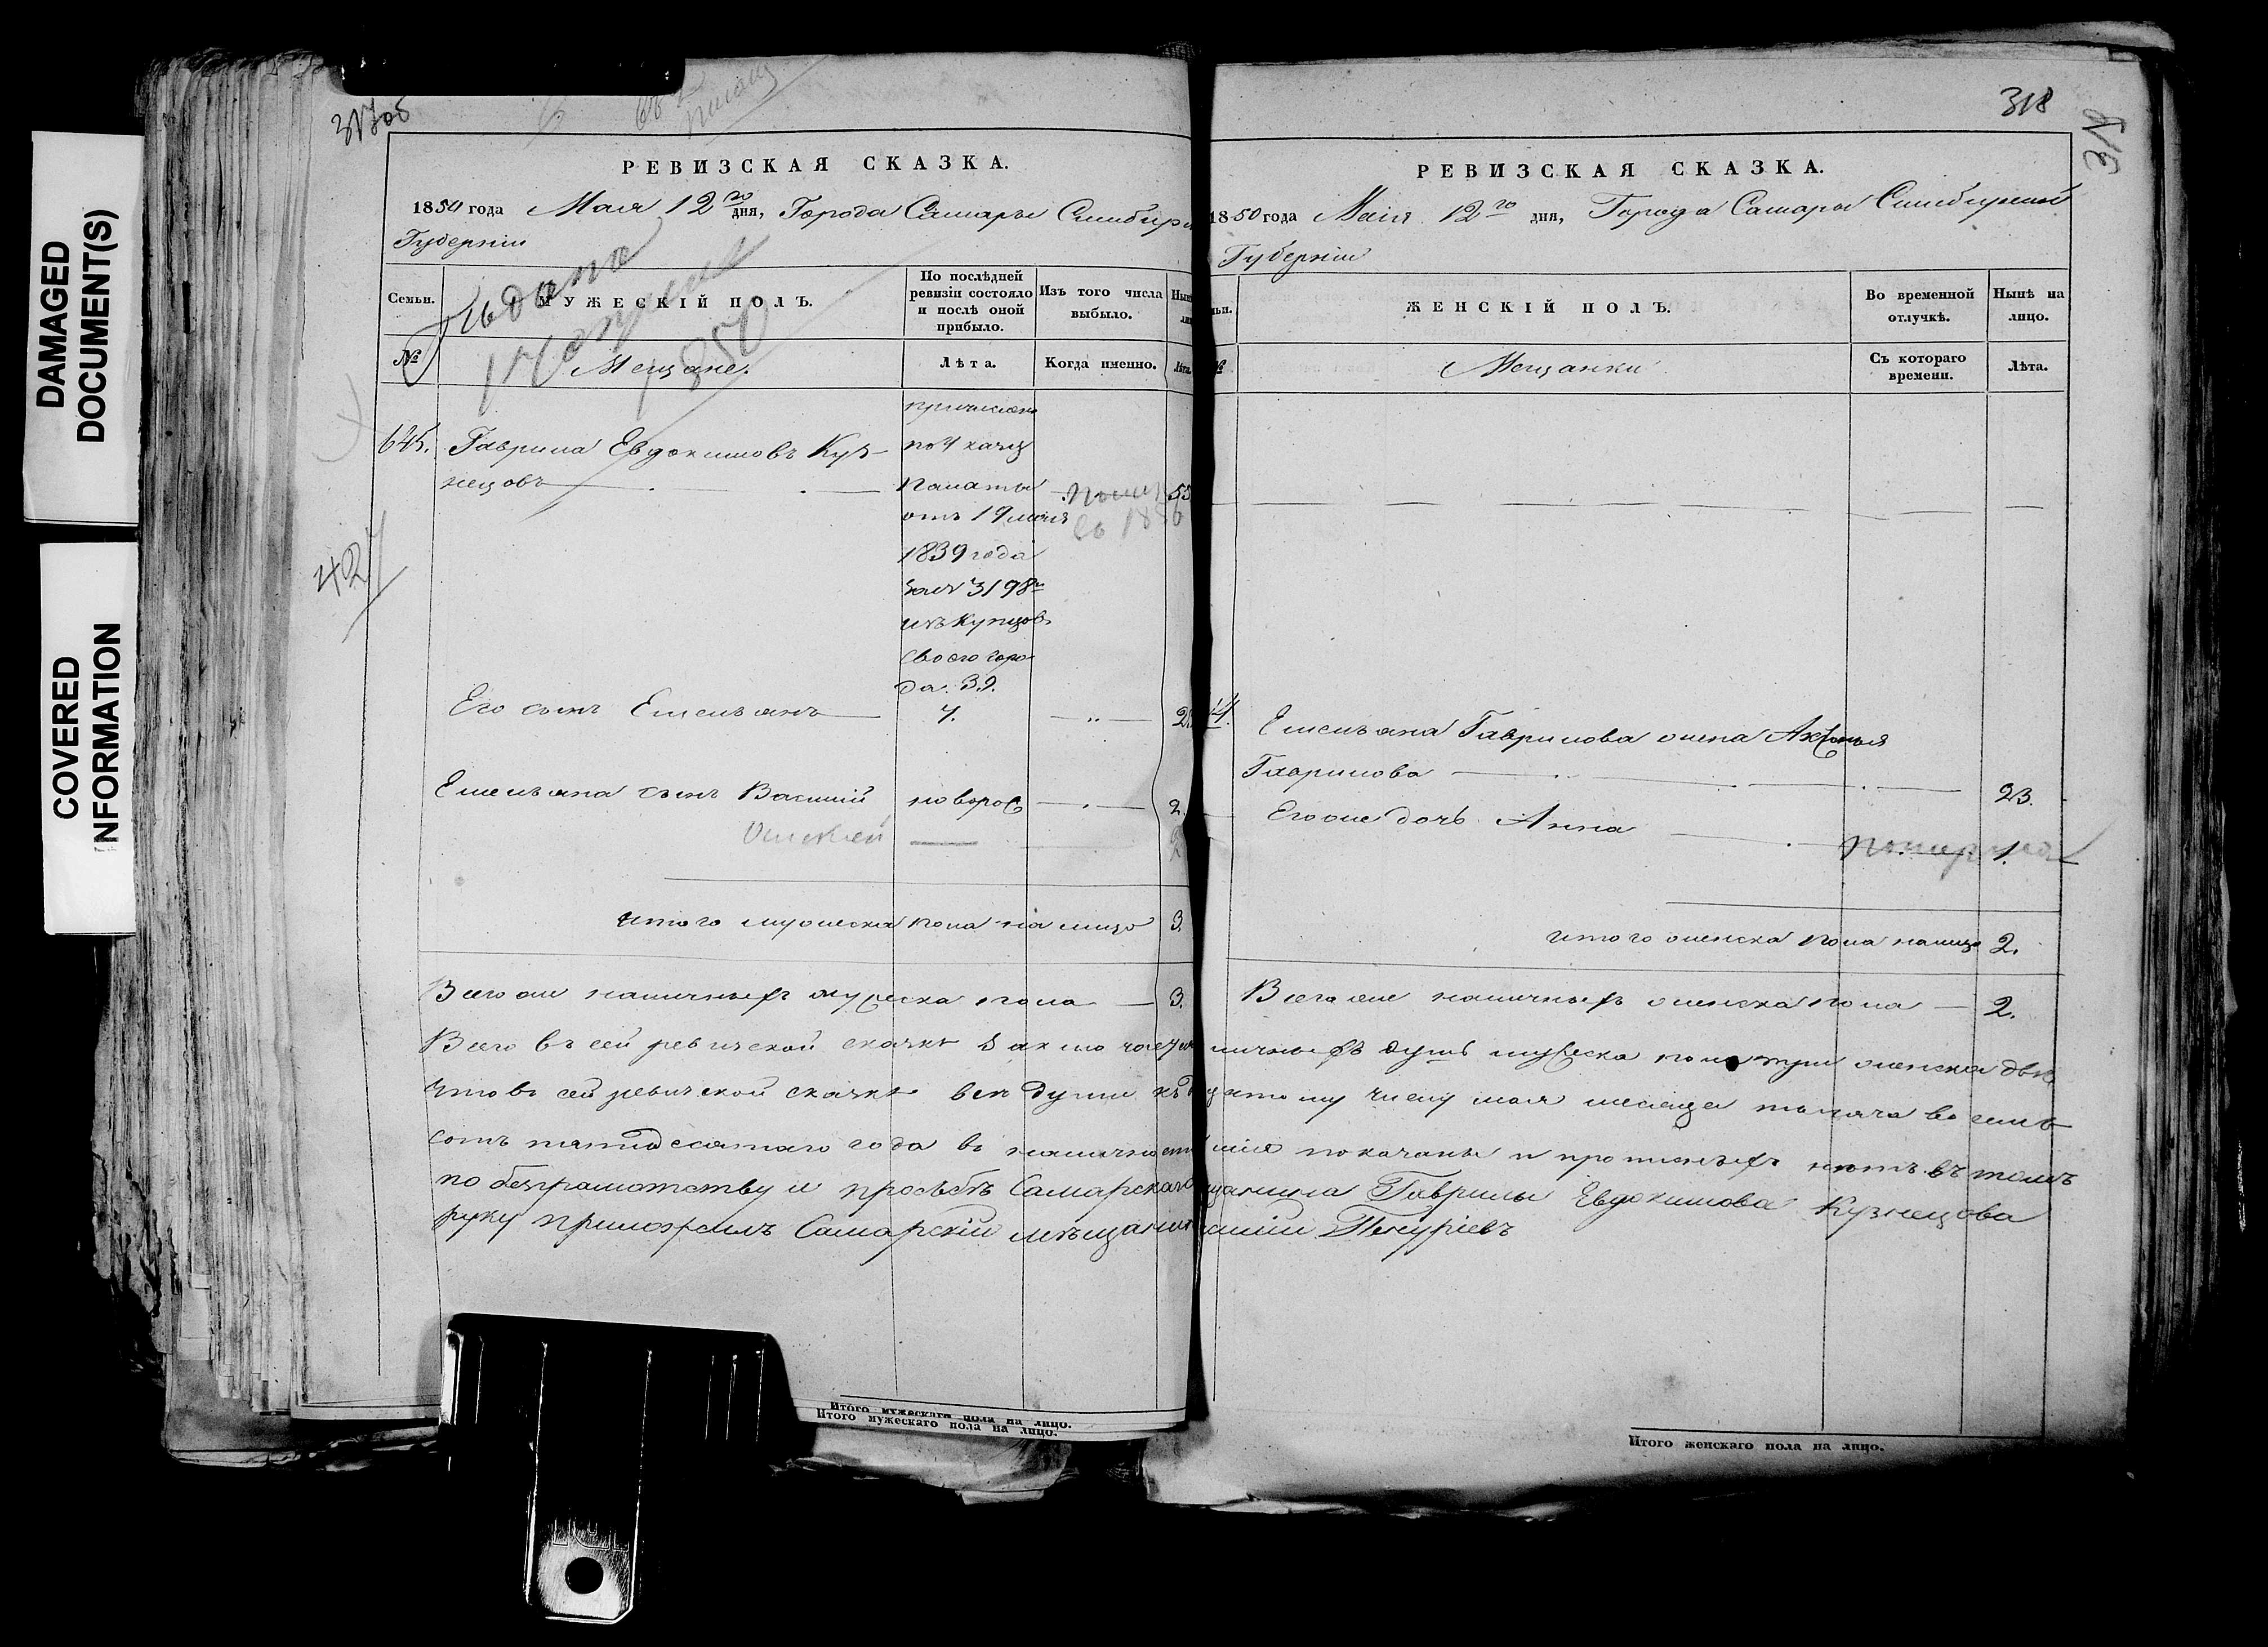 DAMAGED
DOCUMENT(S)
COVERED
INFORMATION
317об
РЕВИЗСКАЯ СКАЗКА.
1850 года Мая 12го дня, Города Самары Симбирс
Губернiи
Семьи.
МУЖЕСКIЙ ПОЛЪ.
По послѣдней ревизiи состояло и послѣ оной прибыло.
Изъ того числа выбыло.
№
Мещане.
Лѣта.
Когда именно.
Лѣта.
1850
645.
Гаврила Евдокимовъ Куз-
нецовъ
причислен
по указу
Палаты
отъ 19 мая
1839 года
за № 3198м
изъ купцовъ
своего горо
да. 39.
помер
въ 18
427
Его сынъ Емельянъ 7.
Емельяна сынъ Василий новорож 2.
Алексей
итого мужеска пола на лицо 3.
Всего же наличныхъ мужеска пола 3.
318
РЕВИЗСКАЯ СКАЗКА.
1850 года Маiя 12го дня, Города Самары Симбирской
Губернiи
ЖЕНСКIЙ ПОЛЪ.
Во временной отлучкѣ.
Нынѣ на лицо.
Мещанки
Съ котораго времени.
Лѣта.
Емельяна Гаврилова жена
Гаврилова 23.
Его же дочь Анна померла 1.
итого женска пола налицо 2.
Всего же наличныхъ женска пола 2.
Всего въ сей ревизской сказкѣ душъ мужеска пола три женска двѣ
что въ сей ревизской сказкѣ всѣ души къ числу мая месяца тысяча восемь
сотъ пятидесятаго года въ наличности показаны и прописныхъ нѣтъ въ томъ
по безграмотству и прозьбѣ Самарскаго Гаврилы Евдокимова Кузнецова
руку приложилъ Самарскiй мѣщанинъ
Итого мужескаго пола на лицо.
Итого мужескаго пола на лицо.
Итого женскаго пола на лицо.